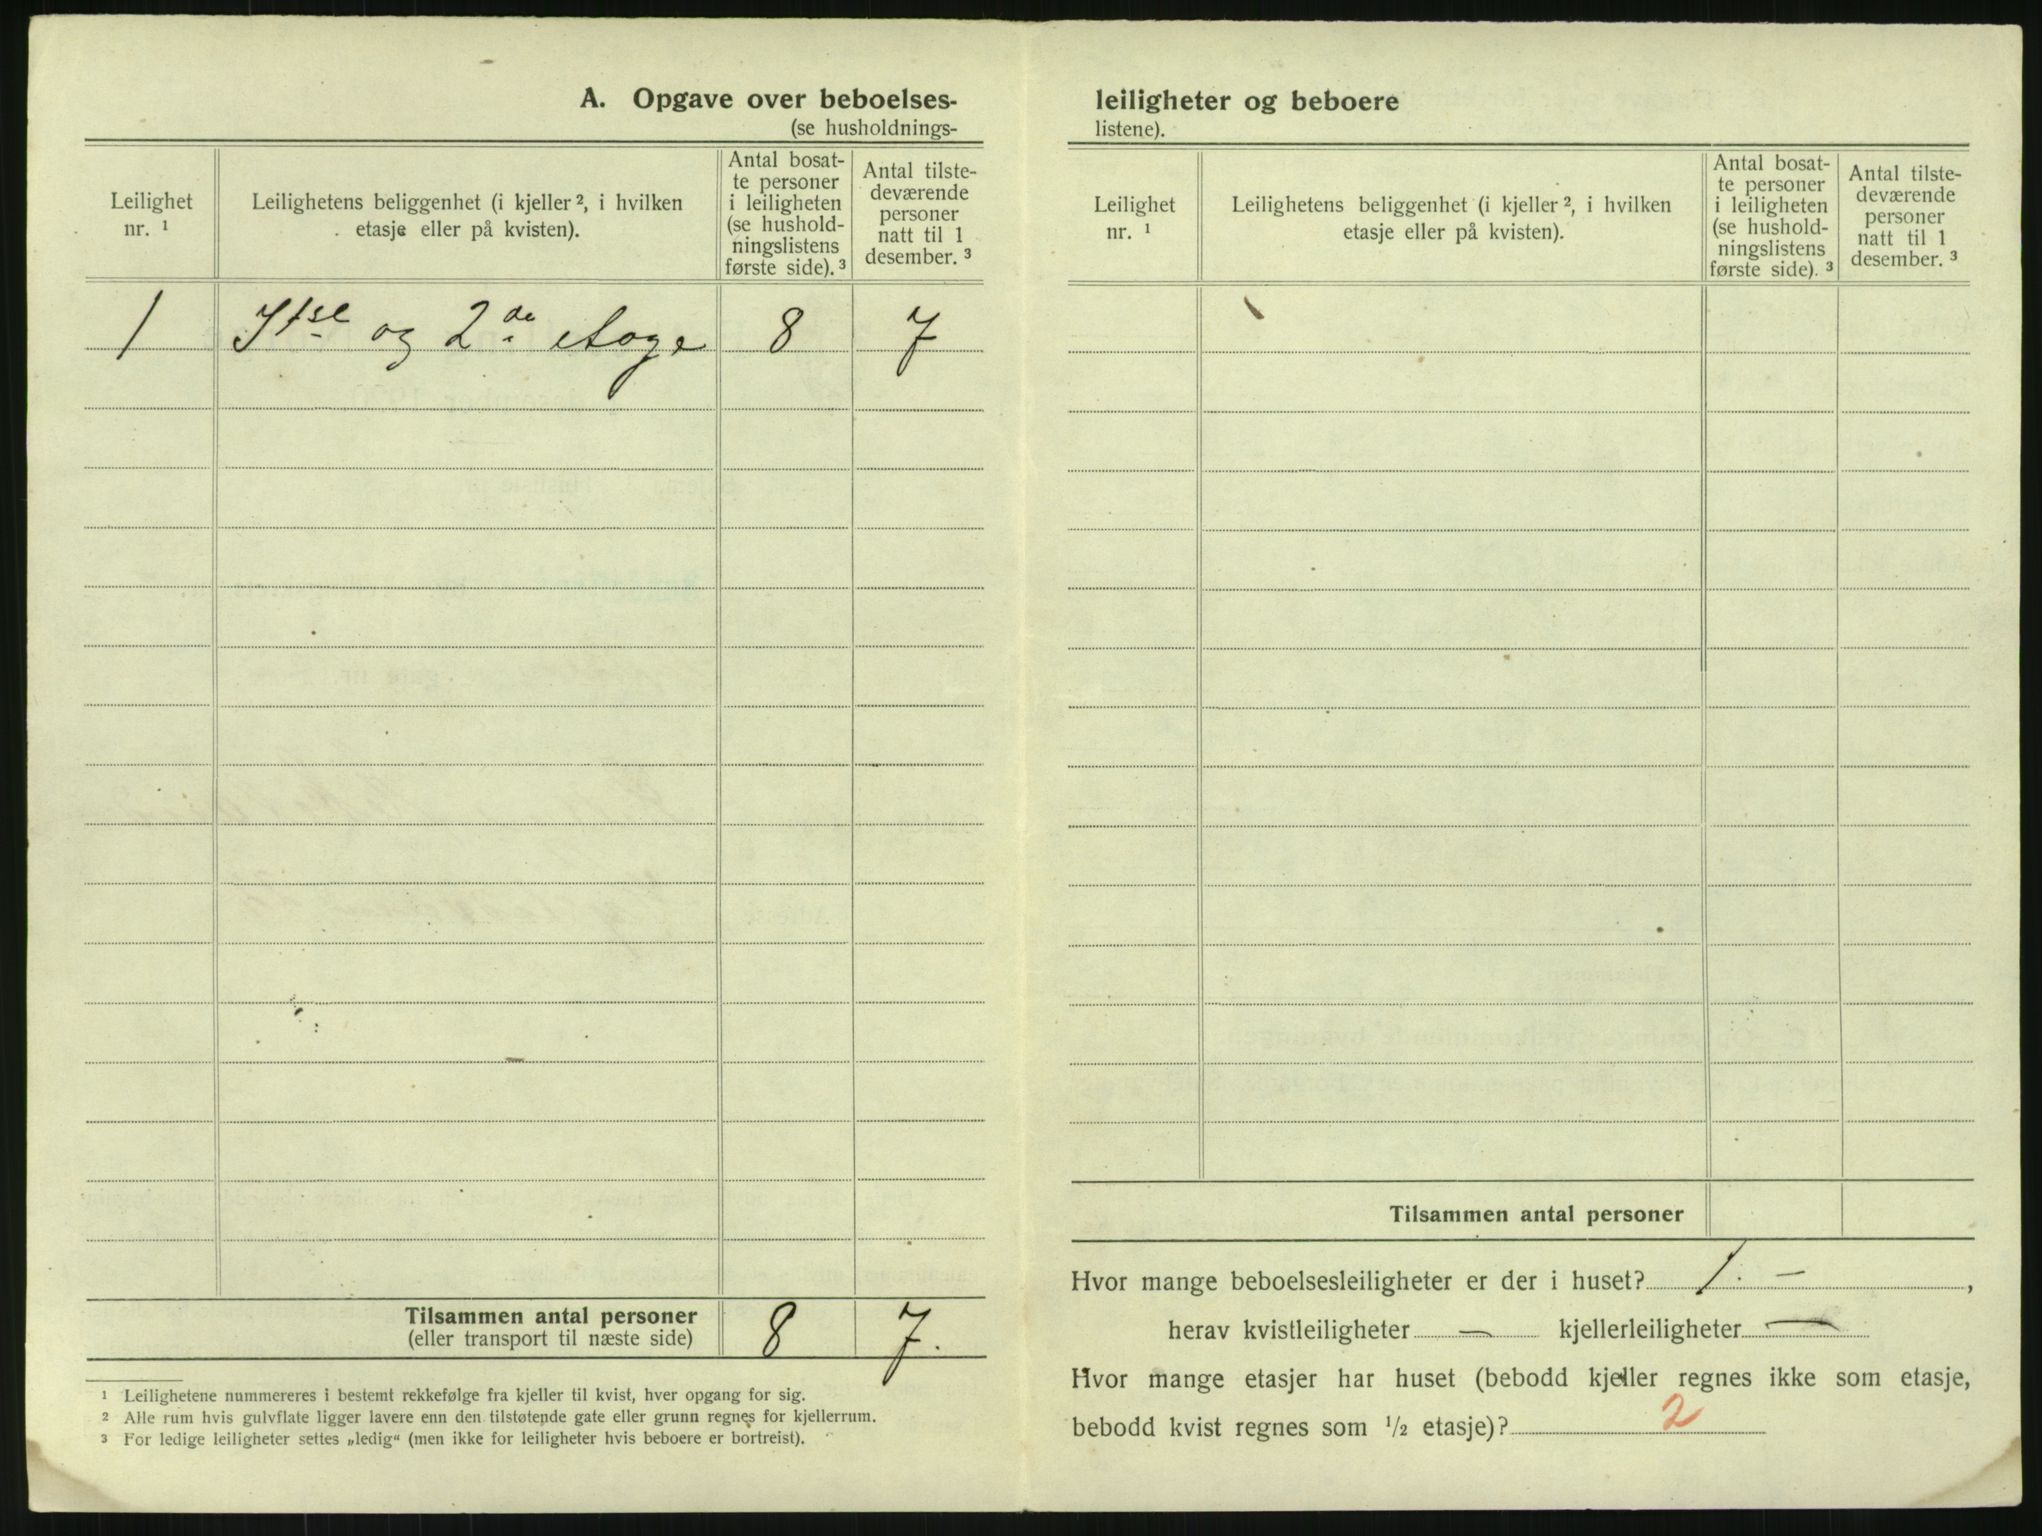 A. Opgave over beboelses-
(se husholdnings-
Leilighet
nr. ¹
Leilighetens beliggenhet (i kjeller ², i hvilken
etasje eller på kvisten).
Antal bosat-
te personer
i leiligheten
(se hushold-
ningslistens
første side). ³
Antal tilste-
deværende
personer
natt til 1
desember. ³
1 1ste og 2de etage 8 7
Tilsammen antal personer
(eller transport til næste side)
8 7.
¹ Leilighetene nummereres i bestemt rekkefølge fra kjeller til kvist, hver opgang for sig.
² Alle rum hvis gulvflate ligger lavere enn den tilstøtende gate eller grunn regnes for kjellerrum.
³ For ledige leiligheter settes „ledig“ (men ikke for leiligheter hvis beboere er bortreist).
leiligheter og beboere
listene).
Leilighet
nr. ¹
Leilighetens beliggenhet (i kjeller ², i hvilken
etasje eller på kvisten).
Antal bosat-
te personer
i leiligheten
(se hushold-
ningslistens
første side). ³
Antal tilste-
deværende
personer
natt til 1
desember. ³
Tilsammen antal personer
Hvor mange beboelsesleiligheter er der i huset? 1. – ,
herav kvistleiligheter — kjellerleiligheter —
Hvor mange etasjer har huset (bebodd kjeller regnes ikke som etasje,
bebodd kvist regnes som ½ etasje)? 2